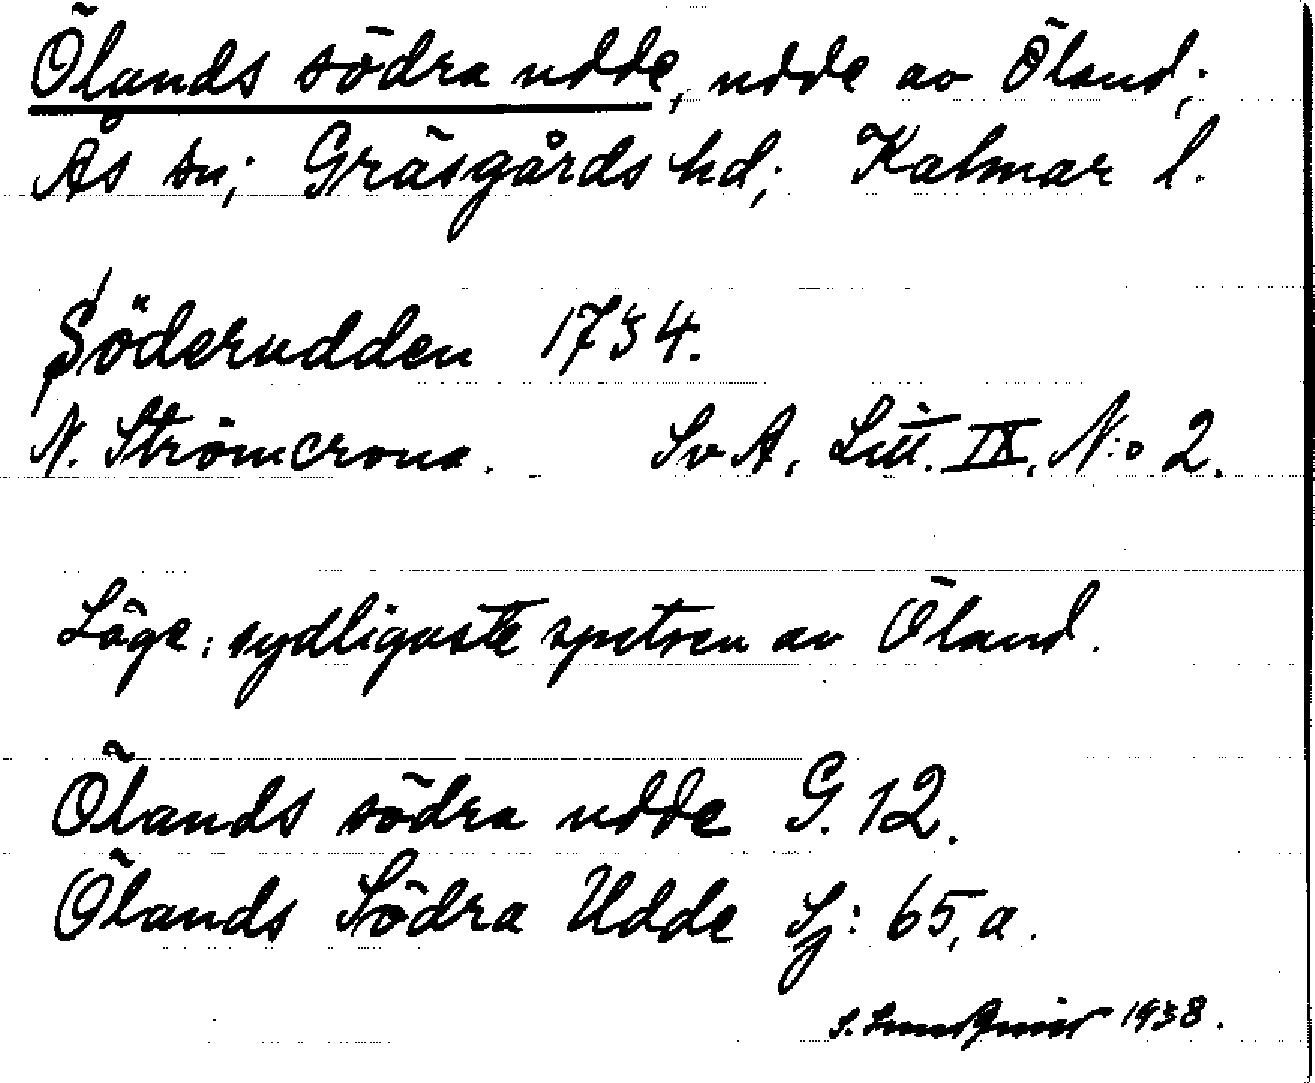 Ölands södra udde, udde av Öland;
Ås sn; Gräsgårds hd; Kalmar l.
Söderudden 1734.
N. Strömcrona. SvA, Litt. IX, N:o 2.
Läge: sydligaste spetsen av Öland.
Ölands södra udde G. 12.
Ölands Södra Udde Sj: 65, a.
S. Lundqvist 1938.